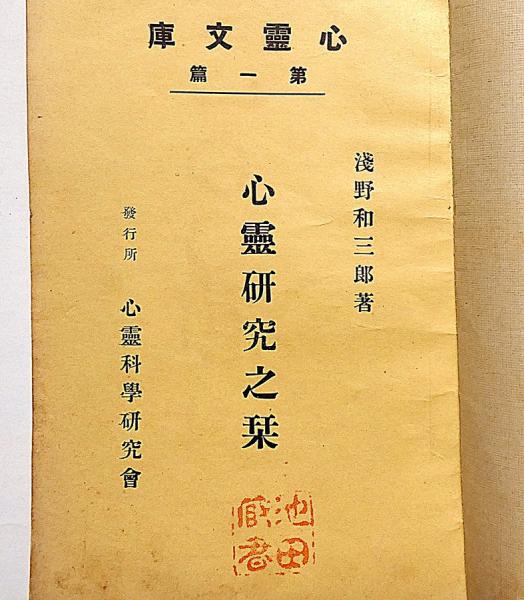 心靈文庫
第一篇
淺野和三郎著
心靈研究之栞
發行所 心靈科學研究會
池田